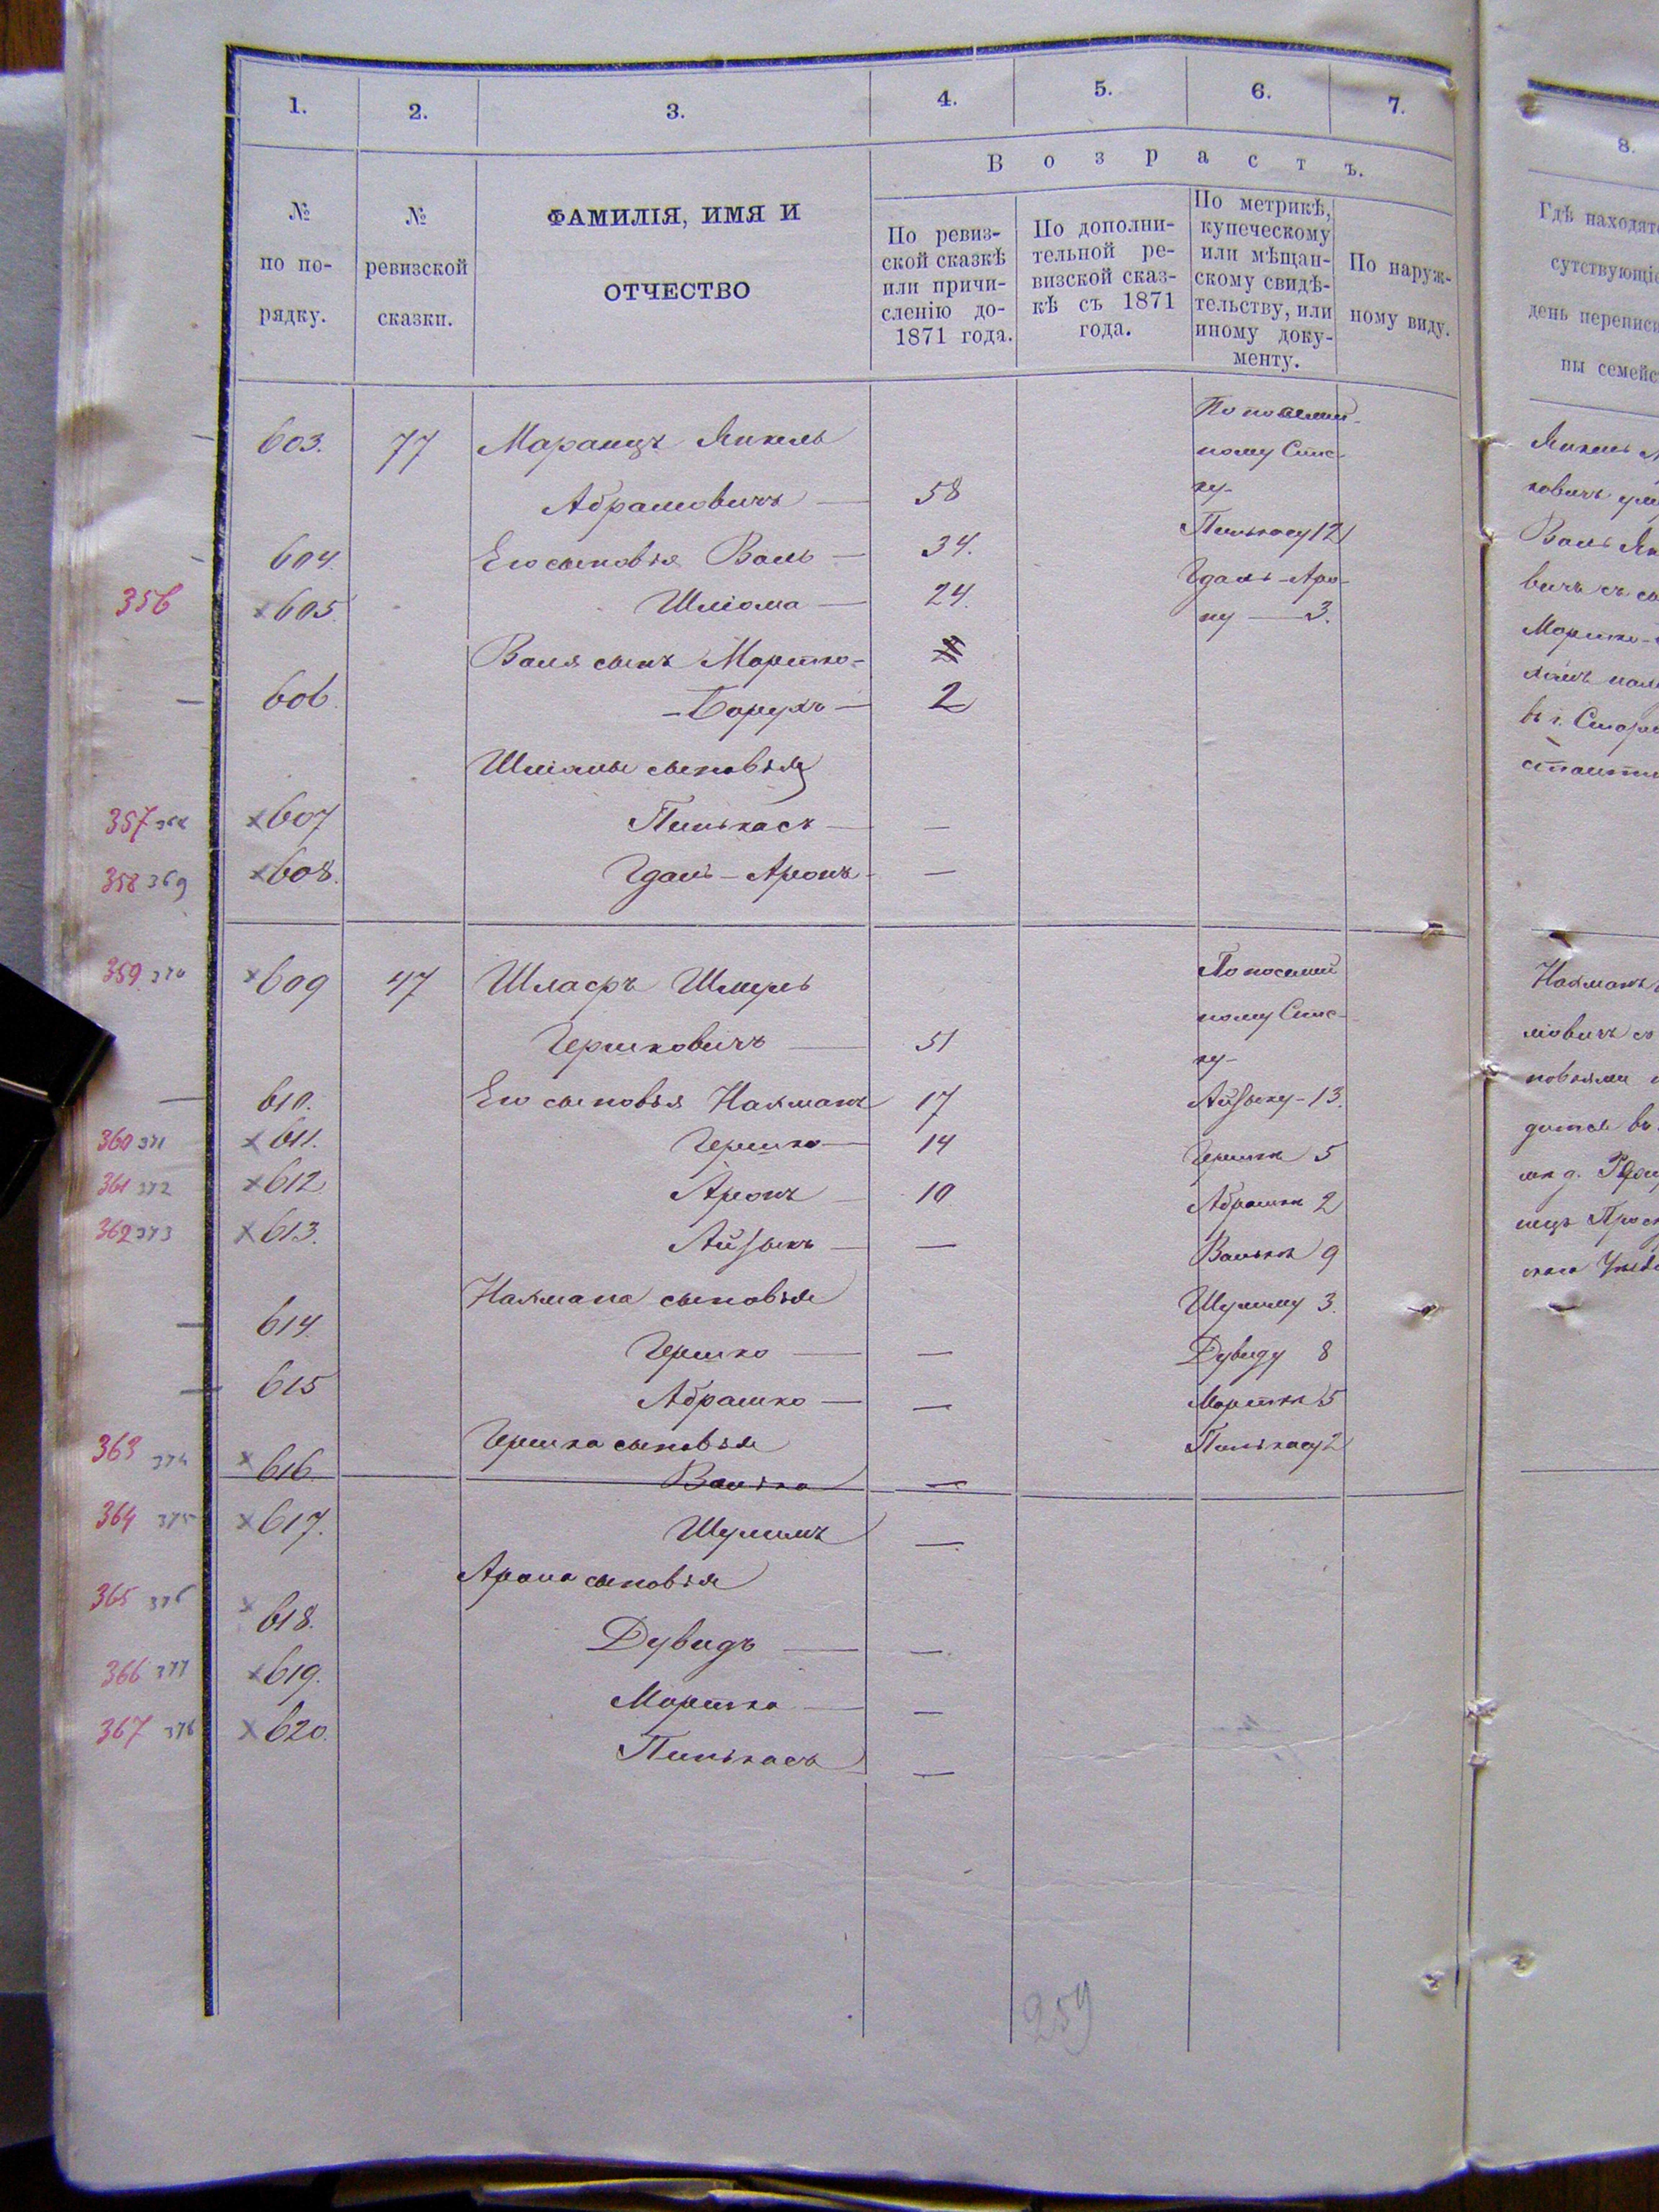 1. 2. 3. 4. 5. 6. 7.
8.
Возрастъ.
№ по по-
рядку.
№ ревизской
сказки.
ФАМИЛІЯ, ИМЯ И
ОТЧЕСТВО
По ревиз-
ской сказкѣ
или причи-
сленію до-
1871 года.
По дополни-
тельной ре-
визской сказ-
кѣ съ 1871
года.
По метрикѣ,
купеческому
или мѣщан-
скому свидѣ-
тельству, или
иному доку-
менту.
По наруж-
ному виду.
603. 77 Маранцъ Янкель
По посемей-
ному Спис-
Абрамовичъ — 58
ку-
604. Его сыновья Валь — 34.
Пинькасу 12
356 ×605. Шліома — 24.
Гдаль-Аро-
ну — 3.
Валя сынъ Мортко-
606. -Борухъ — 2
Шліомы сыновья
357 368 ×607 Пинькасъ — —
358 369 ×608. Гдаль-Аронъ- —
359 370 ×609 47 Шлафъ Шмуль
По посемей
ному Спис-
Гершковичъ — 51
ку-
610. Его сыновья Нахманъ 17
Айзыку-13.
360 371 ×611. Гершко — 14
Гершке 5
361 372 ×612 Аронъ — 10
Абрашке 2
362 373 ×613. Айзыкъ — —
Валькѣ 9
Нахмана сыновья
Шулиму 3.
614. Гершко — —
Дувиду 8
615 Абрашко — —
Морткѣ 5
363 374 ×616. Гершка сыновья
Пинькасу 2
Валько —
364 375 ×617. Шулимъ —
Арона сыновья
365 376 ×618. Дувидъ — —
366 377 ×619. Мортко — —
367 378 ×620. Пинькасъ —
259
Гдѣ находят
сутствующіе
день переписи
ны семейс
Янкель
Валь Ян
Мортко-
Нахманъ